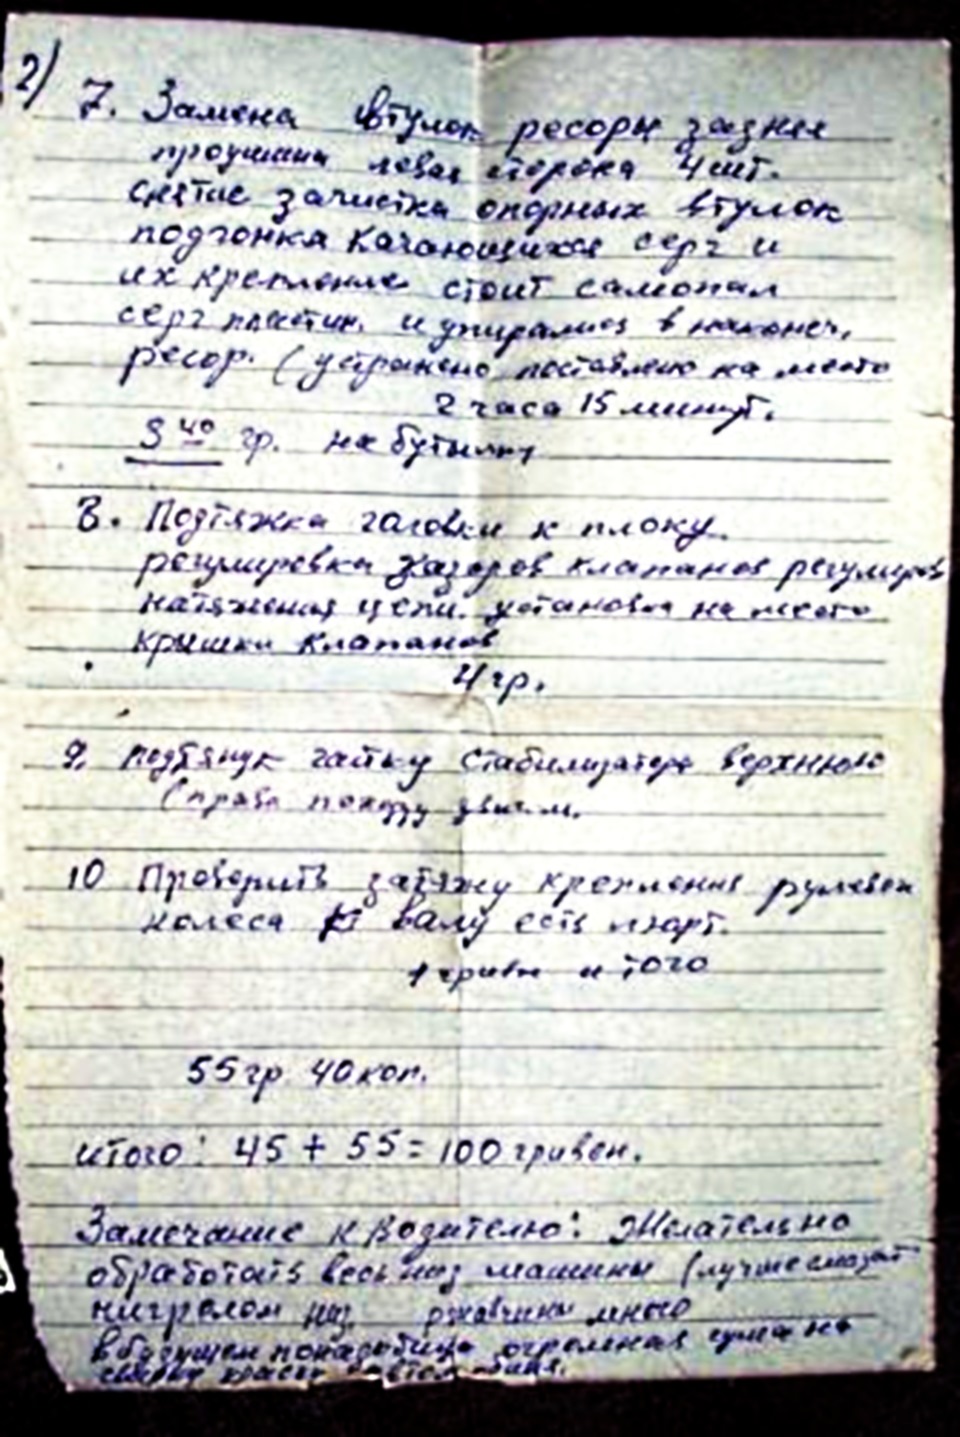 2)
7. Замена втулок ресоры задняя
проушина левая сторона 4 шт.
снятие зачистка опорных втулок
подгонка качающихся серг и
их крепление стоит самопал
серг пластин. и упирались в наконеч.
ресор. (устранено поставлено на место
2 часа 15 минут.
3 40 гр. на бутылку
8. Подтяжка галовки к плоку.
регулировка зазоров клапанов регулиров
натяжения цепи. установка на место
крышки клапанов
4 гр.
9. подтянул гайку стабилизатора верхнюю
(права походу движ.
10 Проверить затяжку крепления рулевого
колеса к валу есть люфт.
1 гривн итого
55 гр 40 коп.
итого: 45 + 55 = 100 гривен.
Замечание к водителю: Желательно
обработать весь низ машины (лучше смазать
нигролом низ ржавчины много
в будущем понадобица огромная сума на
сварку